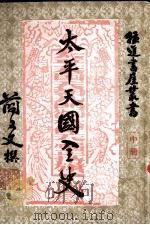 猛進書屋叢書
中冊
太平天國全史
簡又文撰